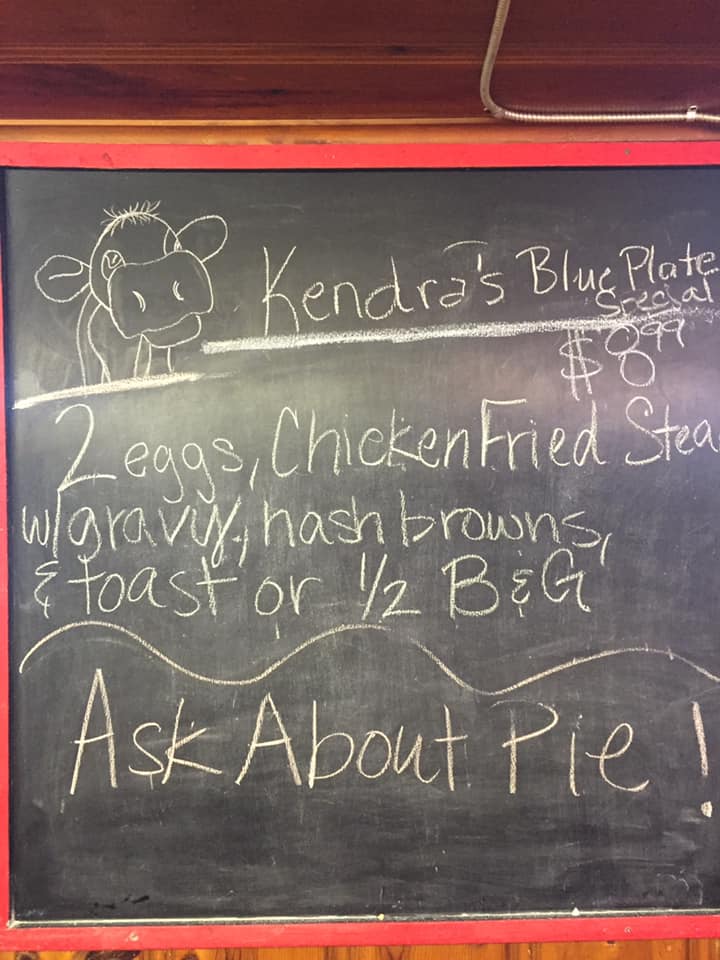 Kendra's Blue Plate
Special
$8.99
2 eggs, Chicken Fried Stea
w/gravy, hash browns,
& toast or 1/2 B & G
Ask About Pie!